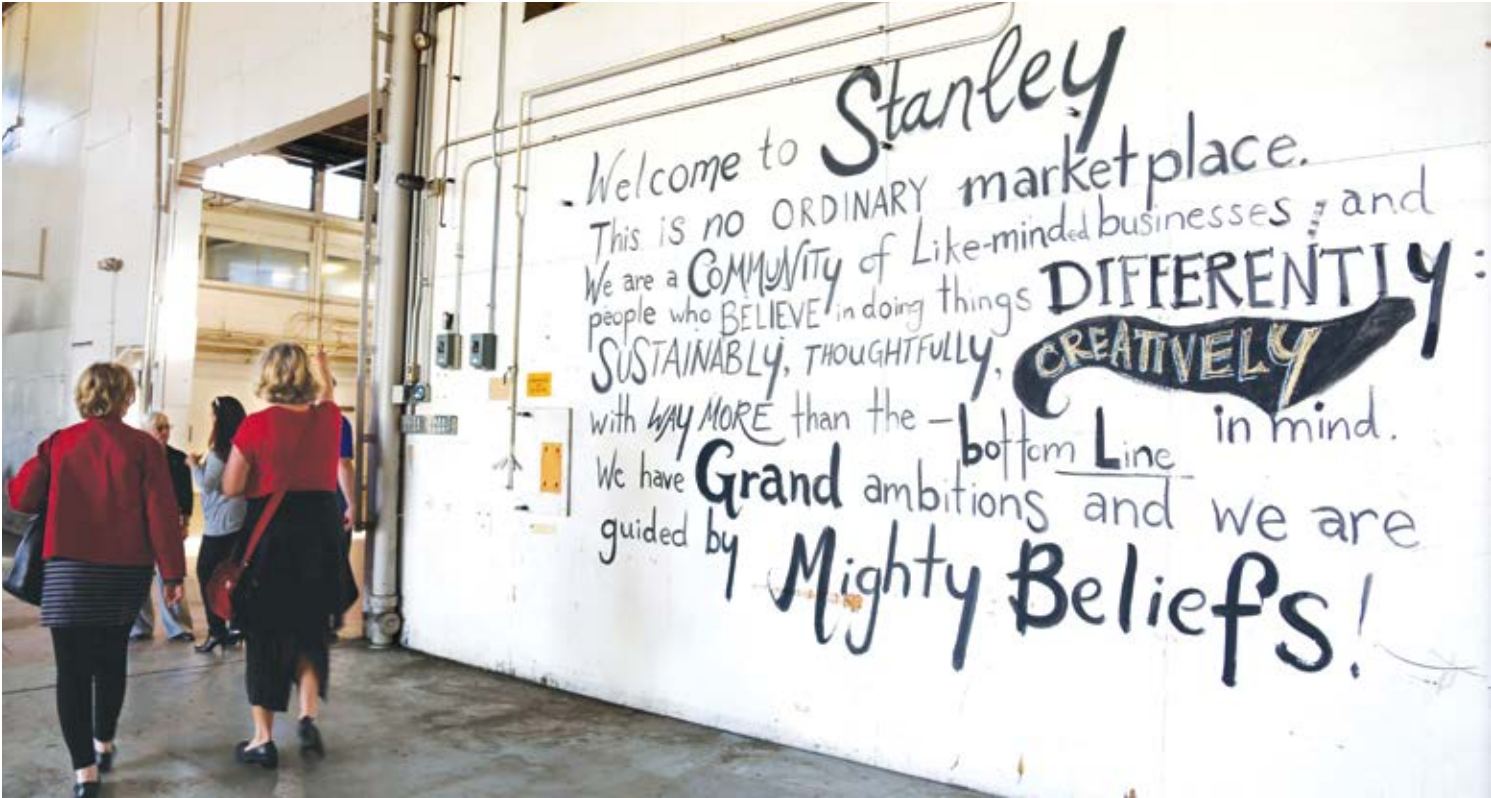 Welcome to Stanley
This is no ORDINARY marketplace.
We are a COMMUNITY of Like-minded businesses ; and
people who BELIEVE in doing things DIFFERENTLY:
SUSTAINABLY, THOUGHTFULLY, CREATIVELY
with WAY MORE than the - bottom Line in mind.
We have Grand ambitions and we are
guided by Mighty Beliefs!